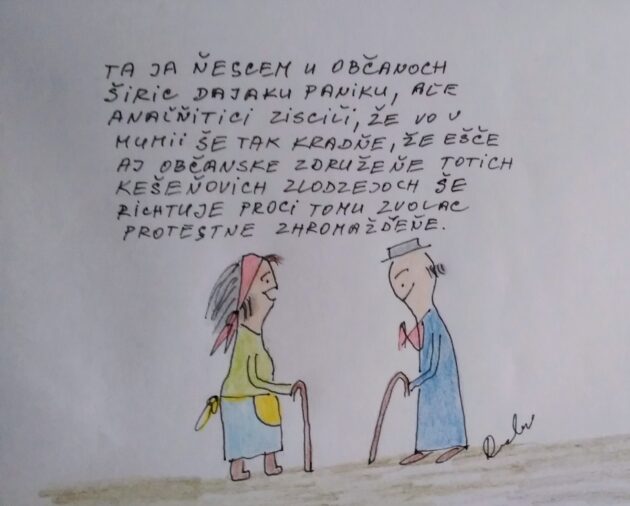 TA JA ŇESCEM U OBČANOCH
ŠIRIC DAJAKU PANIKU, AĽE
ANAĽŇITICI ZISCIĽI, ŽE VO V
MUMII ŠE TAK KRADŇE, ŽE EŠČE
AJ OBČANSKE ZDRUŽEŇE TOTICH
KEŠEŇOVICH ZLODZEJOCH ŠE
RICHTUJE PROCI TOMU ZVOLAC
PROTESTNE ZHROMAŽĎEŇE.